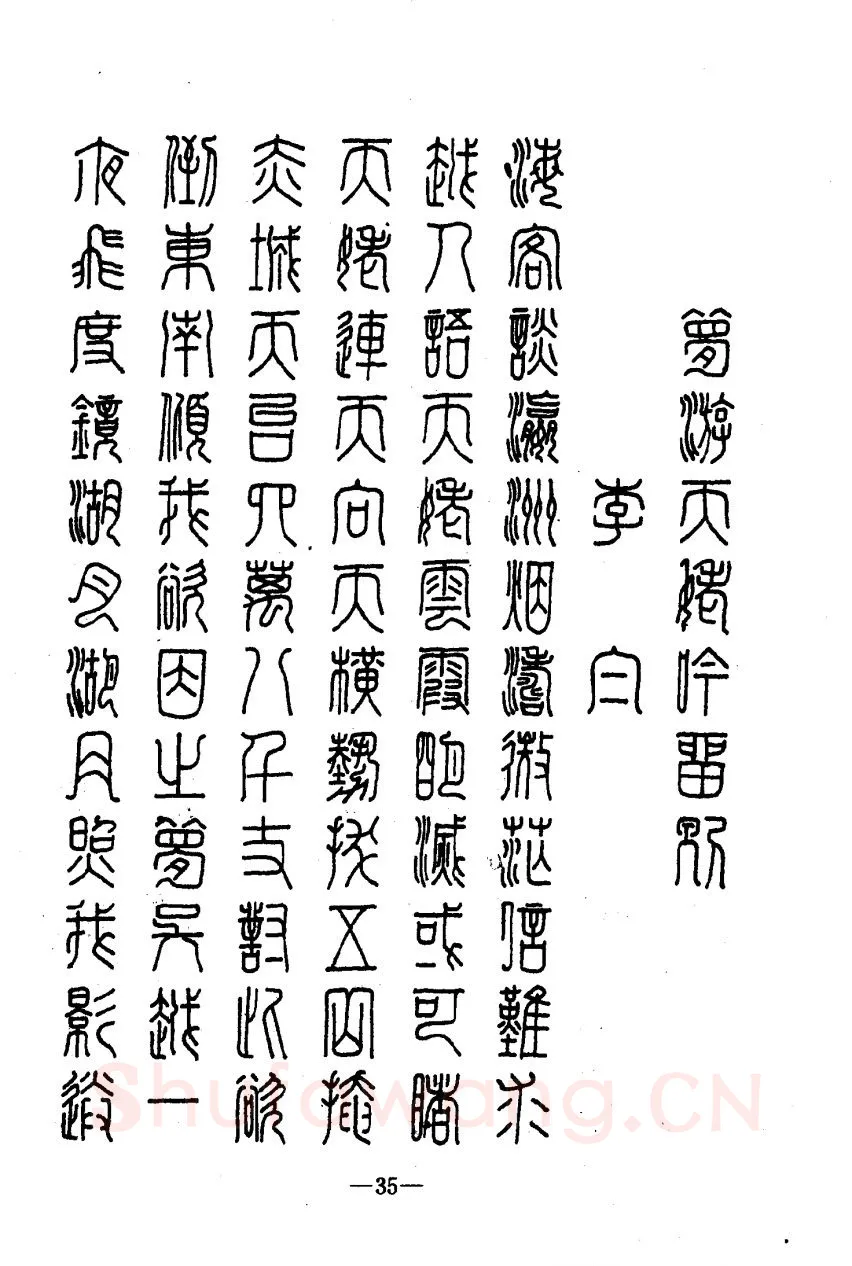 夢游天姥吟留別
李白
海客談瀛洲烟濤微茫信難求
越人語天姥雲霞明滅或可睹
天姥連天向天橫勢拔五岳掩
赤城天台四萬八千丈對此欲
倒東南傾我欲因之夢吳越一
夜飛度鏡湖月湖月照我影送
—35—
Shufawang.CN